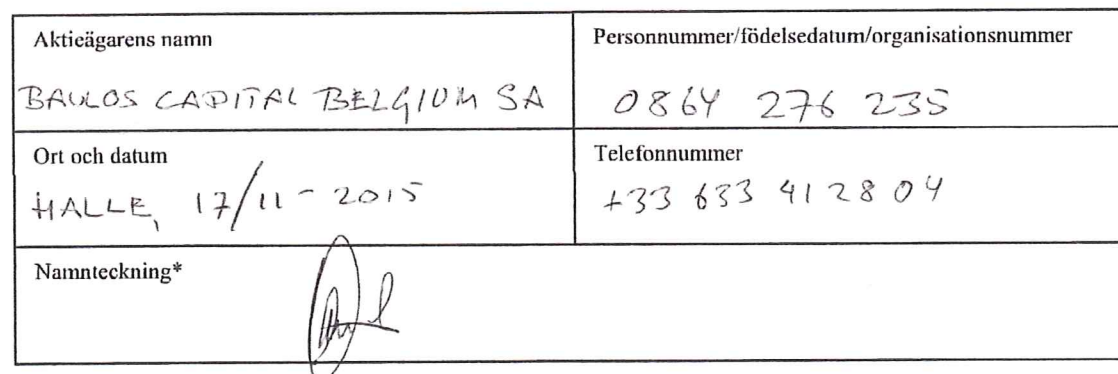 Aktieägarens namn
BAULOS CAPITAL BELGIUM SA
Personnummer/födelsedatum/organisationsnummer
0864 276 235
Ort och datum
HALLE, 17/11-2015
Telefonnummer
+33 633 41 28 04
Namnteckning*